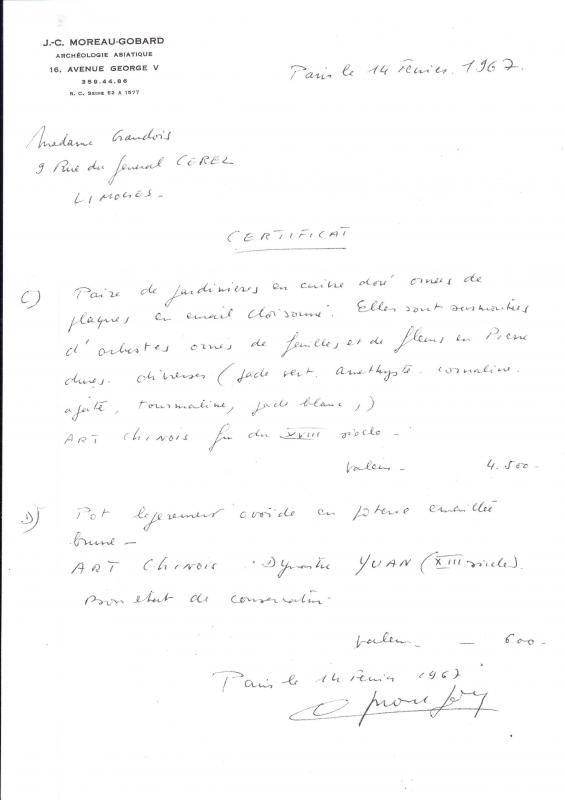 J.-C. MOREAU-GOBARD
ARCHÉOLOGIE ASIATIQUE
16, AVENUE GEORGE V
359.44.86
R. C. SEINE 62 A 1577
Paris le 14 Février 1967.
Madame
9 Rue du General CEREZ
LIMOGES -
CERTIFICAT
C) Paire de jardinières en cuivre doré ornées de
plaques en émail cloisonné. Elles sont surmontées
d'arbustes ornés de feuilles et de fleurs en Pierre
dures. diverses (jade vert. améthyste. cornaline.
agate, tourmaline, jade blanc,)
ART CHINOIS fin du XVIII siècle -
Valeur - 4.500 -
D) Pot légèrement ovoïde en poterie émaillée
brune -
ART CHINOIS. Dynastie YUAN (XIII siècle).
Bon état de conservation.
Valeur - 600 -
Paris le 14 Février 1967